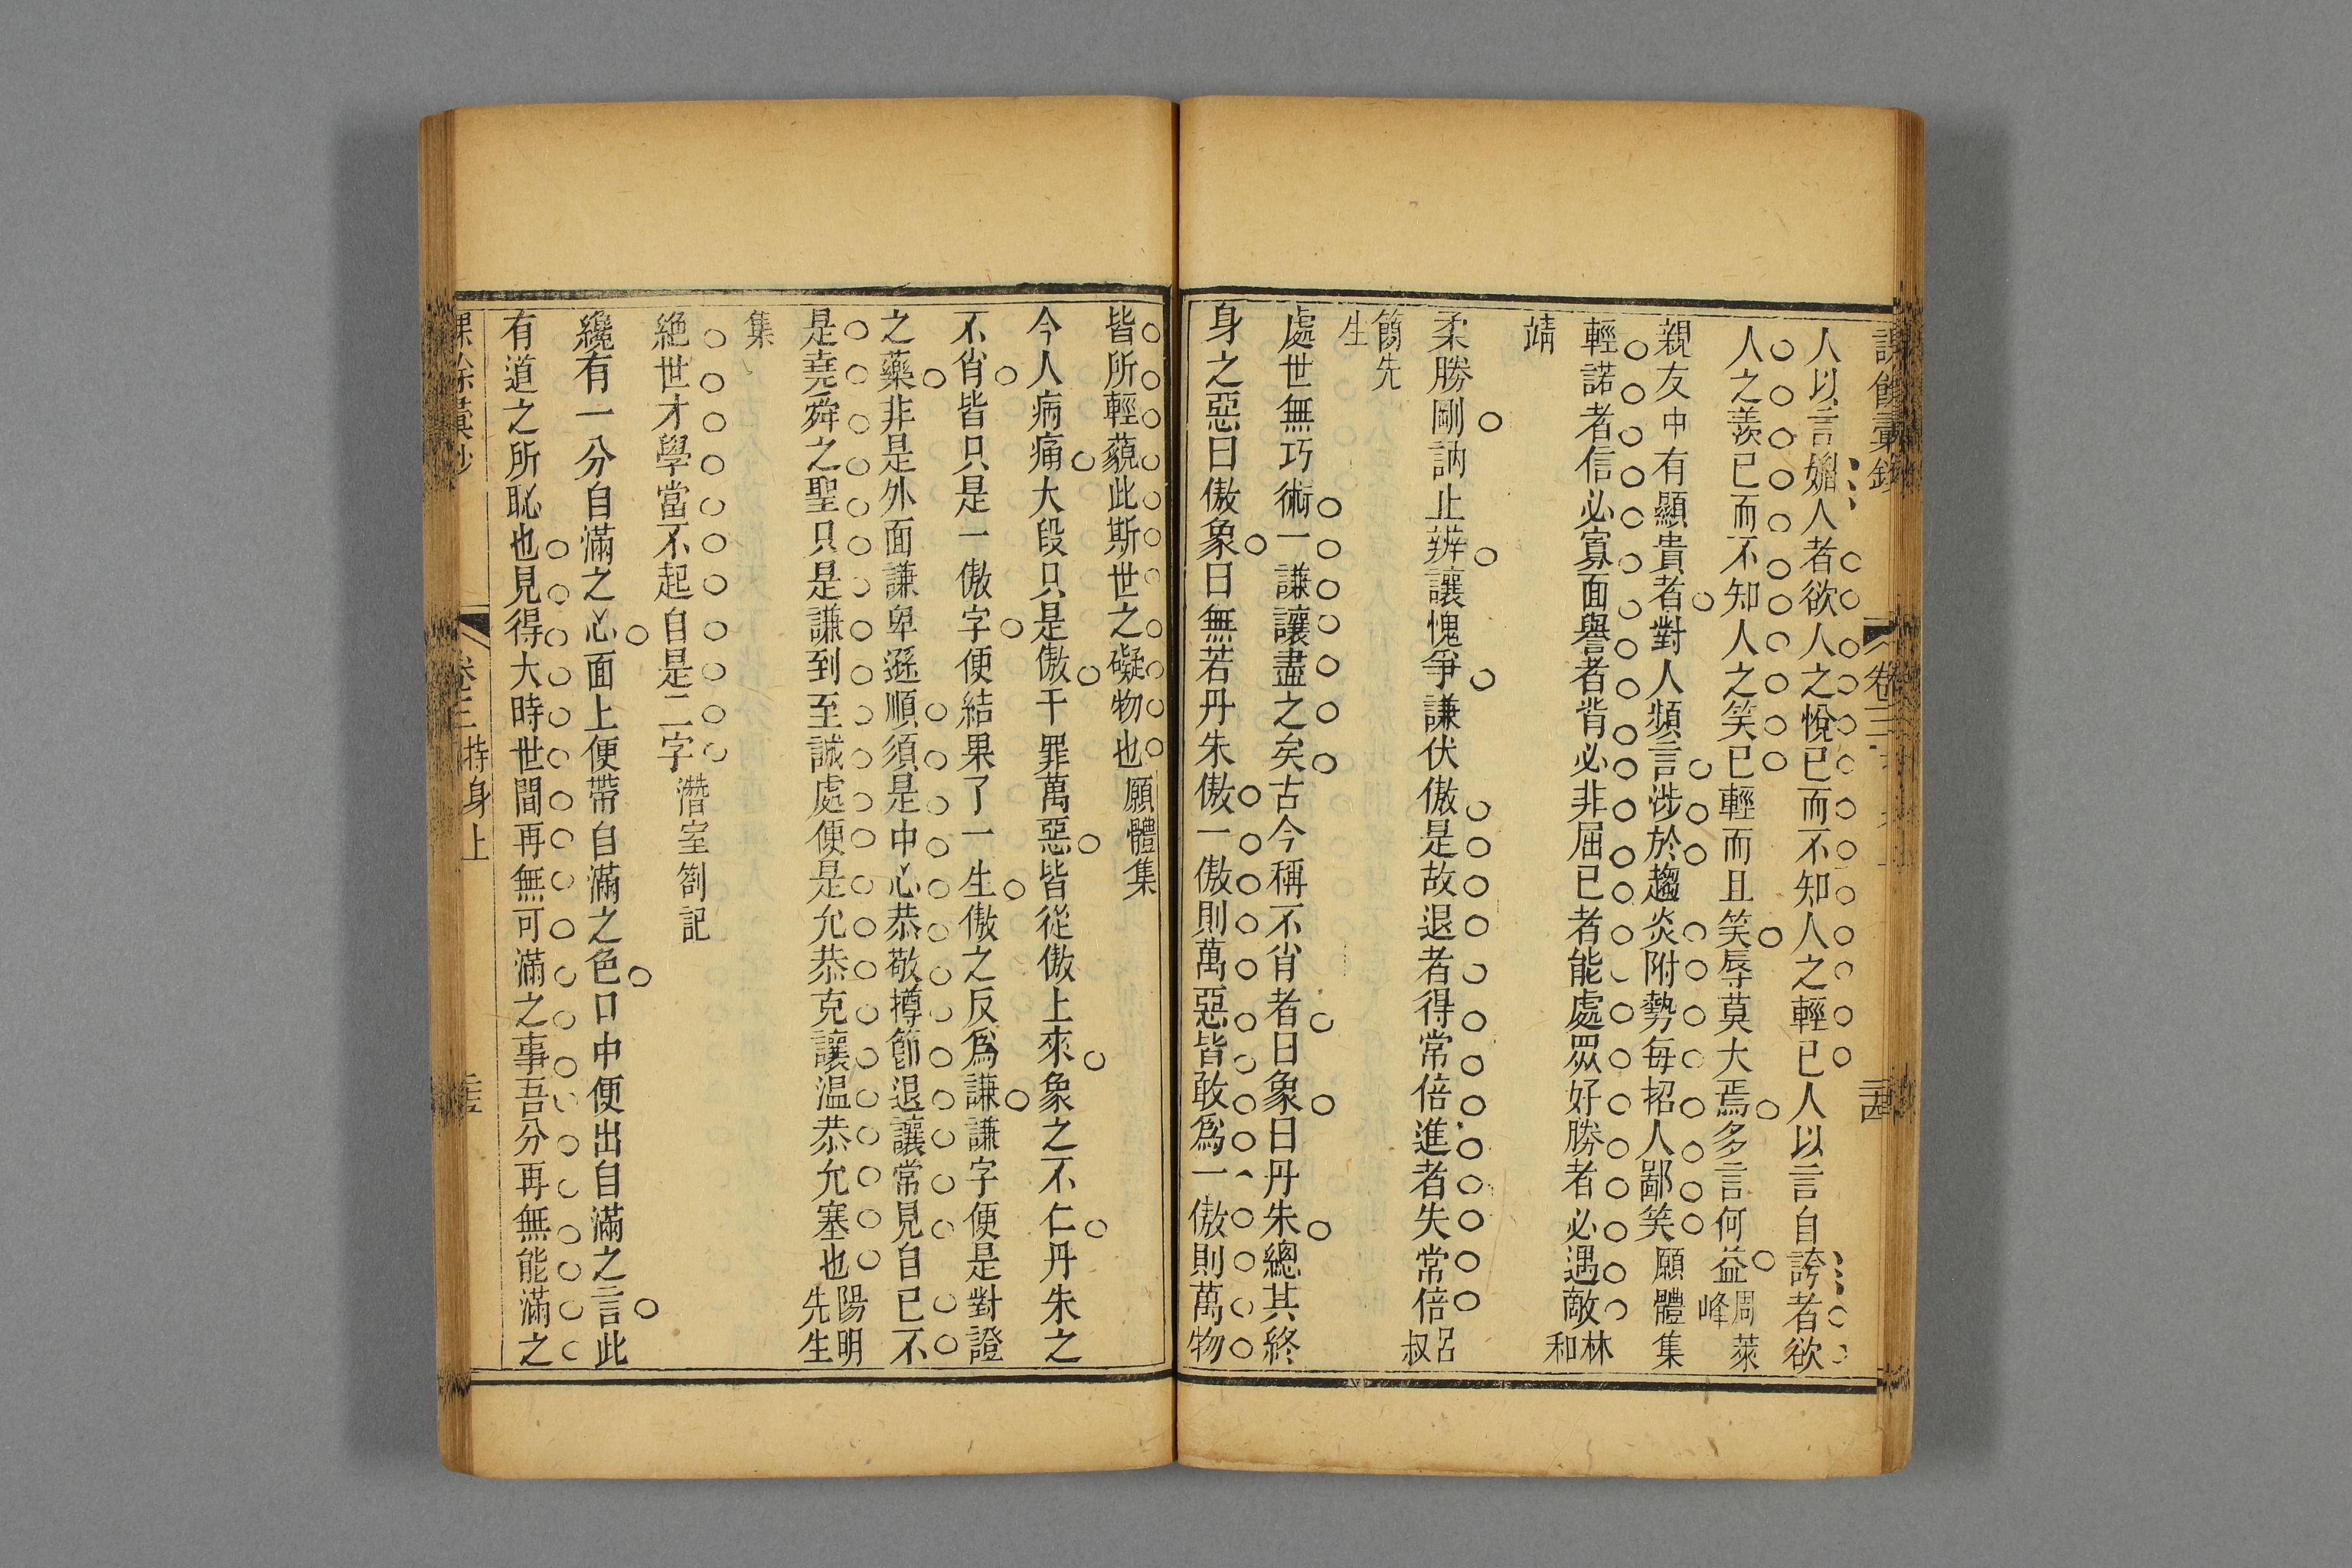 課餘彙鈔
卷三
人以言媚人者欲人之悅已而不知人之輕已人以言自誇者欲
人之羨已而不知人之笑已輕而且笑辱莫大焉多言何益周萊峰
親友中有顯貴者對人頻言涉於趨炎附勢每招人鄙笑願體集
輕諾者信必寡面譽者背必非屈已者能處眾好勝者必遇敵林和
靖
柔勝剛訥止辨讓愧爭謙伏傲是故退者得常倍進者失常倍呂叔
簡先生
處世無巧術一謙讓盡之矣古今稱不肖者曰象曰丹朱總其終
身之惡曰傲象曰無若丹朱傲一傲則萬惡皆敢爲一傲則萬物
皆所輕藐此斯世之礙物也願體集
今人病痛大段只是傲千罪萬惡皆從傲上來象之不仁丹朱之
不肖皆只是一傲字便結果了一生傲之反爲謙謙字便是對證
之藥非是外面謙卑遜順須是中心恭敬撙節退讓常見自已不
是堯舜之聖只是謙到至誠處便是允恭克讓温恭允塞也陽明先生
集
絶世才學當不起自是二字潛室劄記
纔有一分自滿之心面上便帶自滿之色口中便出自滿之言此
有道之所恥也見得大時世間再無可滿之事吾分再無能滿之
卷三 持身上